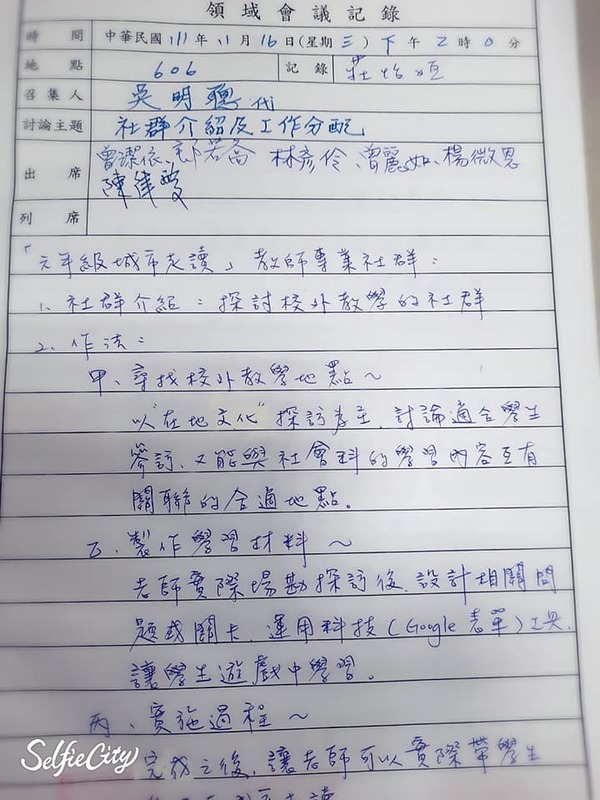 領域會議記錄
時間 中華民國111年11月16日(星期三)下午2時0分
地點 606 記錄 莊怡
召集人 吳明聰代
討論主題 社群介紹及工作分配
出席 曾潔依、邱若喬 林彥伶、曾麗如、楊微恩
陳
列席
「六年級城市走讀」教師專業社群：
1. 社群介紹：探討校外教學的社群
2. 作法：
甲、尋找校外教學地點～
以"在地文化"探訪為主，討論適合學生
參訪，又能與社會科的學習內容互有
關聯的合適地點。
乙、製作學習材料～
老師實際場勘探訪後，設計相關問
題或關卡，運用科技(Google表單)工具，
讓學生遊戲中學習。
丙、實施過程～
完成之後，讓老師可以實際帶學生
SelfieCity